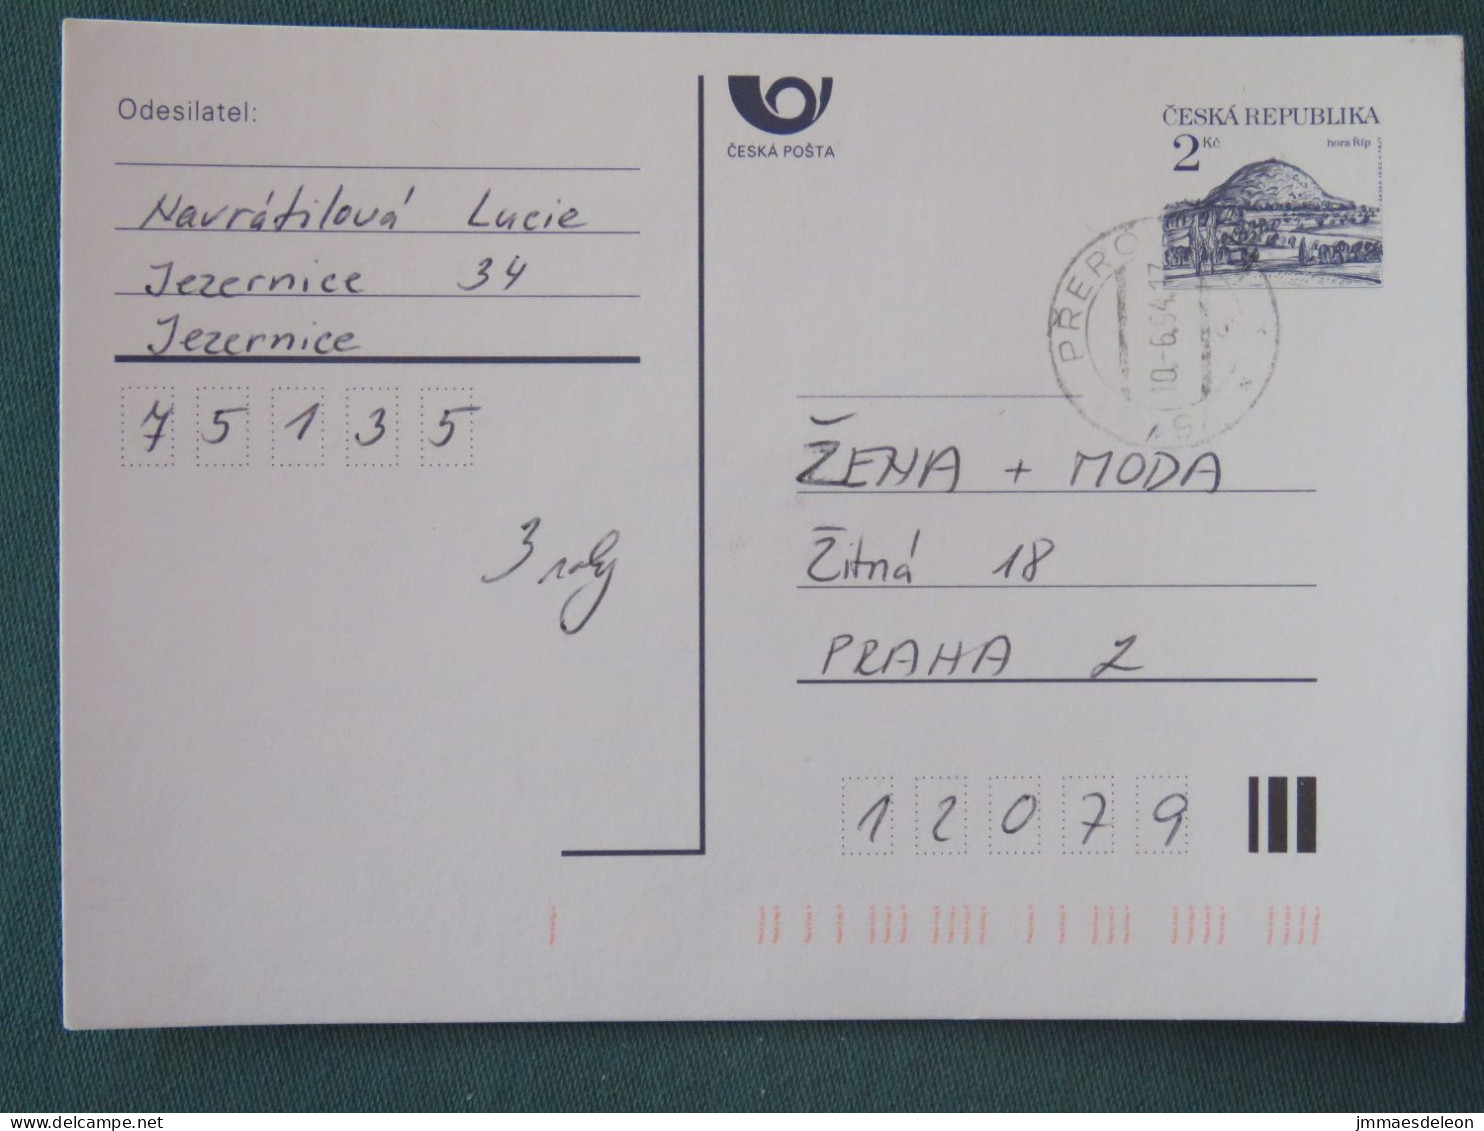 Odesilatel:
Navrátilová Lucie
Jezernice 34
Jezernice
75135
3 roky
ČESKÁ POŠTA
ČESKÁ REPUBLIKA
2 Kč
hora Říp
PŘERO
10.-6.94.17
ŽENA + MÓDA
Žitná 18
PRAHA 2
12079
delcampe.net
jmmaesdeleon